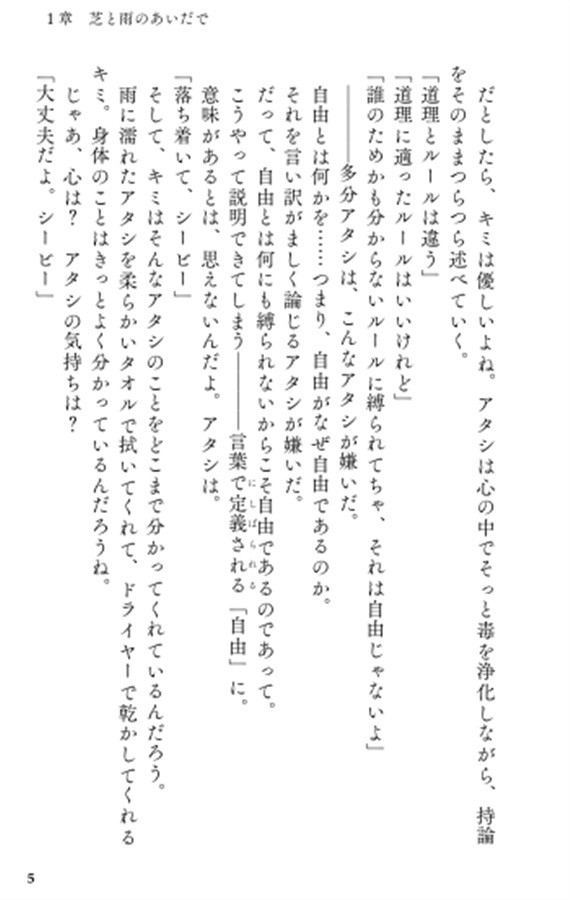 1章　芝と雨のあいだで
だとしたら、キミは優しいよね。アタシは心の中でそっと毒を浄化しながら、持論
をそのままつらつら述べていく。
「道理とルールは違う」
「道理に適ったルールはいいけれど」
「誰のためかも分からないルールに縛られてちゃ、それは自由じゃないよ」
――――多分アタシは、こんなアタシが嫌いだ。
自由とは何かを……つまり、自由がなぜ自由であるのか。
それを言い訳がましく論じるアタシが嫌いだ。
だって、自由とは何にも縛られないからこそ自由であるのであって。
こうやって説明できてしまう――――言葉で定義される「自由」に。
にしばられる
意味があるとは、思えないんだよ。アタシは。
「落ち着いて、シービー」
そして、キミはそんなアタシのことをどこまで分かってくれているんだろう。
雨に濡れたアタシを柔らかいタオルで拭いてくれて、ドライヤーで乾かしてくれる
キミ。身体のことはきっとよく分かっているんだろうね。
じゃあ、心は？　アタシの気持ちは？
「大丈夫だよ。シービー」
5